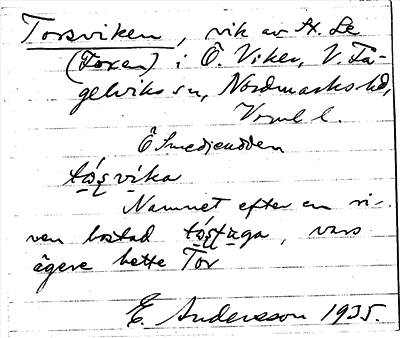 Torsviken, vik av St. Le
(Foxen) i Ö. Viker, V. Få-
gelviks sn, Nordmarks hd,
Vrml l.
Ö Smedjeudden
tɷ́s̩vika
Namnet efter en ri-
ven bostad, vars
ägare hette Tor
E. Andersson 1935.